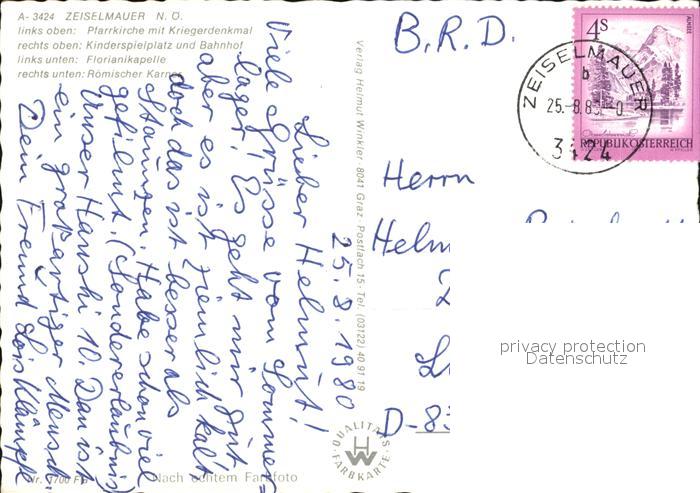 A- 3424 ZEISELMAUER N. Ö.
links oben: Pfarrkirche mit Kriegerdenkmal
rechts oben: Kinderspielplatz und Bahnhof
links unten: Florianikapelle
rechts unten: Römischer Karner
25.8.1980
Lieber Helmut!
Viele Grüsse vom Sommer=
lager. Es geht mir gut
aber es ist ziemlich kalt
doch das ist besser als
Stauungen. Habe schon viel
gefilmt. (Sondererlaubnis)
Unser Hauski 10. Dan ist
ein großartiger Mensch
Dein Freund Lois
Verlag Helmut Winkler · 8041 Graz · Postfach 15 · Tel. (03122) 40 91 19
QUALITÄTS
FARBKARTE
Nr. 1700 F/8
Nach echtem Farbfoto
B.R.D.
ZEISELMAUER
b
25.-8.8
3424
4s
ALMSEE
REPUBLIK ÖSTERREICH
Herrn
Helm
D-8
privacy protection
Datenschutz